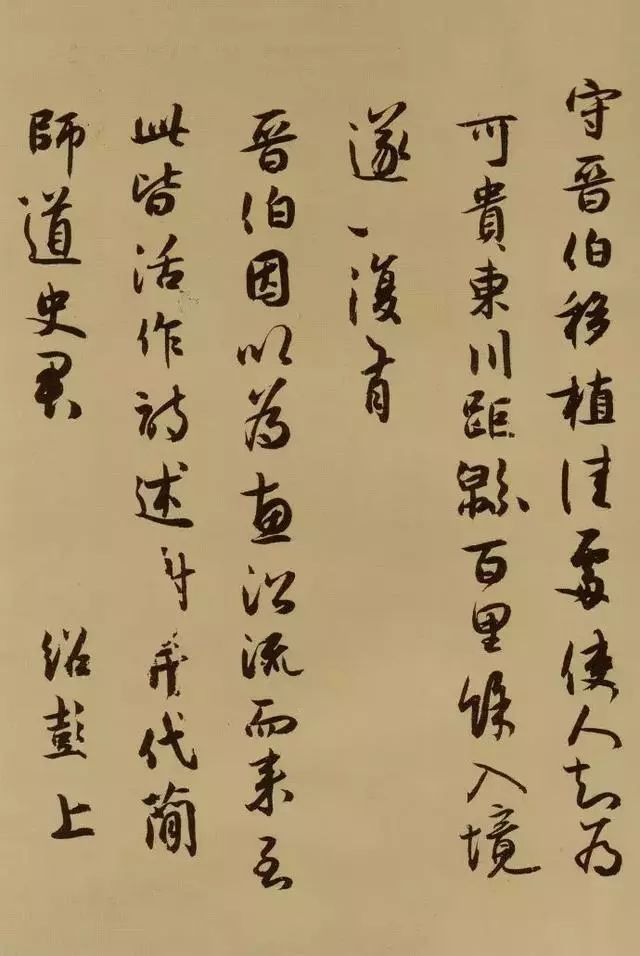 守晉伯移植佳處使人知為
可貴東川距綿百里餘入境
遂一復有
晉伯因以為惠沿流而来至
此皆活作詩述代簡
師道史君 紹彭上